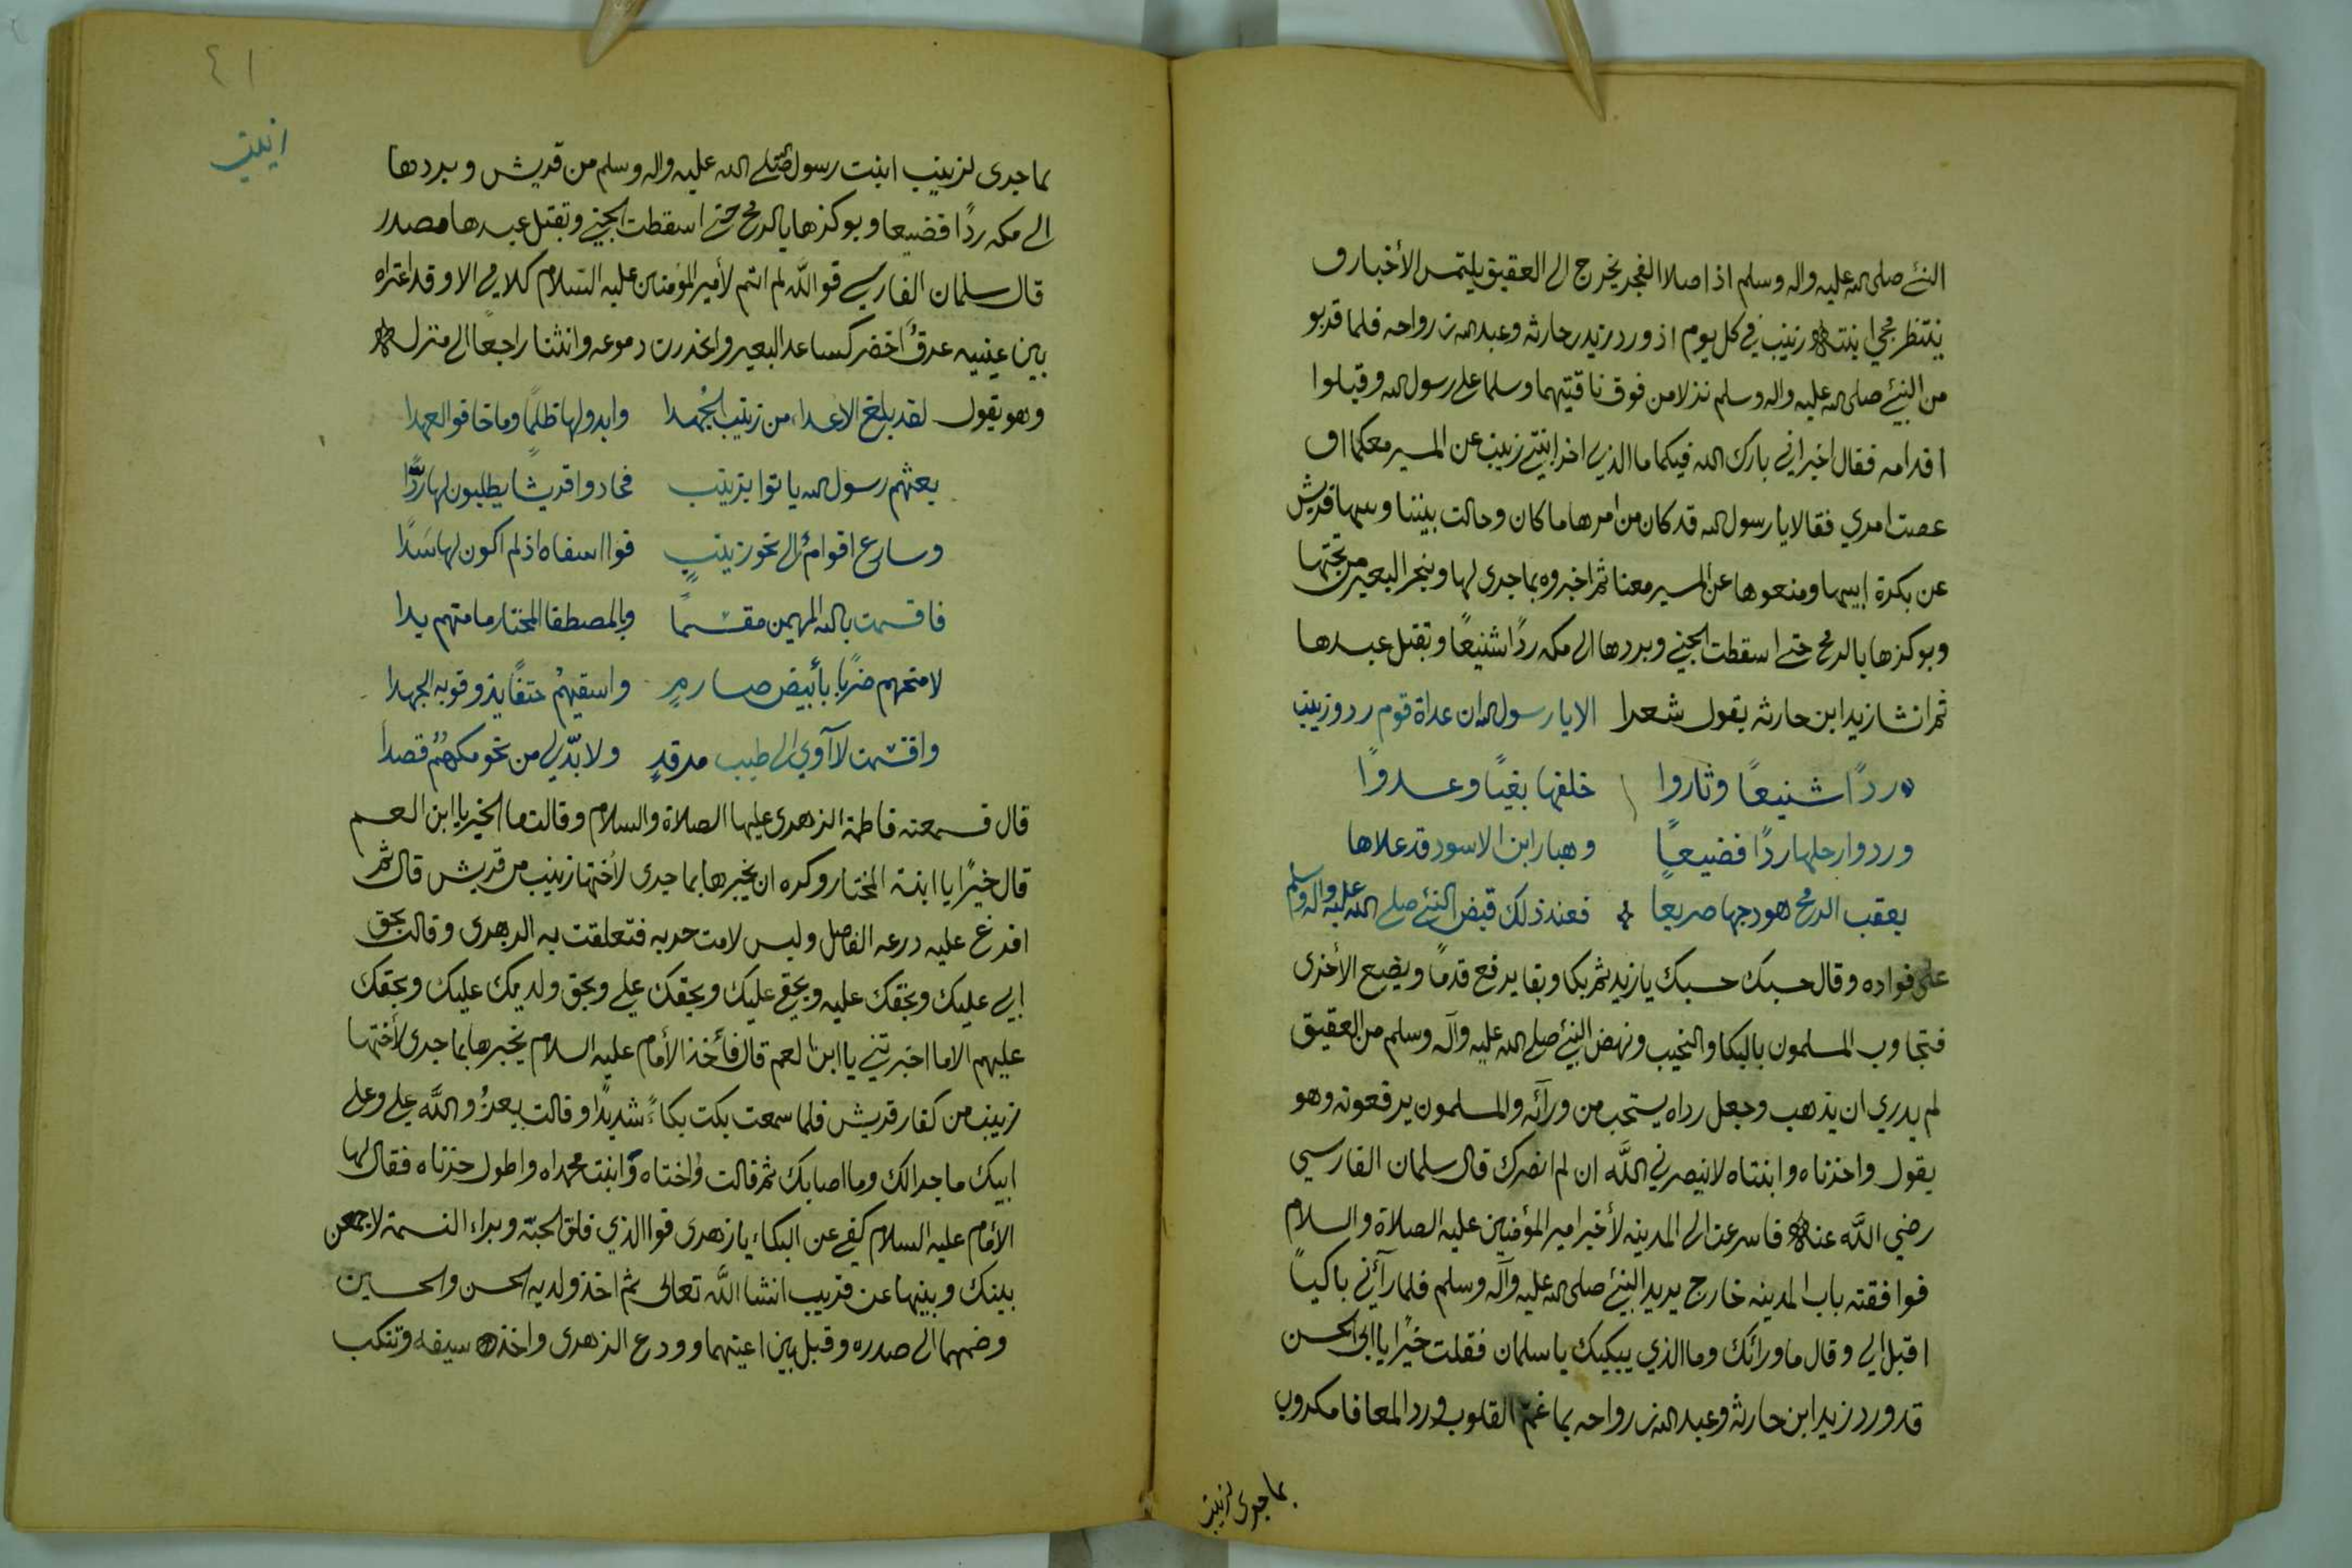 النبي صلى الله عليه واله وسلم اذا صلا الفجر يخرج الى العقيق يلتمس الأخبار و
ينتظر مجي ابنته زينب في كل يوم اذ ورد زيد بن حارثه وعبد الله بن رواحه فلما قربو
من النبي صلى الله عليه واله وسلم نزلا من فوق ناقتيهما وسلما على رسول الله وقبلوا
اقدامه فقال اخبراني بارك الله فيكما ما الذي اخر ابنتي زينب عن المسير معكما او
عصت امري فقالا يا رسول الله قد كان من امرها ما كان وحالت بيننا وبينها قريش
عن بكرة ابيها ومنعوها عن المسير معنا ثم اخبروه بما جرى لها وبنحر البعير من تحتها
وبوكزها بالرمح حتى اسقطت الجنين وبردها الى مكه ردًا شنيعًا وبقتل عبدها
ثم انشا زيد ابن حارثه يقول شعرا الا يا رسول الله ان عداة قوم ردو زينب
ردًا شنيعًا وثاروا خلفها بغيًا وعدوًا
وردوا رحلها ردًا فضيعًا وهبار ابن الاسود قد علاها
بعقب الرمح هودجها صريعا فعند ذلك قبض النبي صلى الله عليه واله وسلم
على فواده وقال حسبك حسبك يا زيد ثم بكا وبقا يرفع قدمًا ويضع الأخرى
فتجاوب المسلمون بالبكا والنحيب ونهض النبي صلى الله عليه وآله وسلم من العقيق
لم يدري ان يذهب وجعل رداه يسحب من ورآئه والمسلمون يرفعونه وهو
يقول واحزناه وابنتاه لا نيصرني الله ان لم انصرك قال سلمان الفارسي
رضي الله عنه فاسرعت الى المدينه لأخبر امير المؤمنين عليه الصلاة والسلام
فوافقته باب المدينه خارج يريد النبي صلى الله عليه وآله وسلم فلما رآني باكيًا
اقبل الي وقال ما ورائك وما الذي يبكيك يا سلمان فقلت خيرًا يا ابى الحسن
قد ورد زيد ابن حارثه وعبد الله بن رواحه بما غم القلوب ورد المعافا مكروب
بما جرى لزينب
٤١
زينب
بما جرى لزينب ابنت رسول الله صلى الله عليه واله وسلم من قريش وبردها
الى مكه ردًا فضيعا وبوكزها بالرمح حتى اسقطت الجنين وبقتل عبدها مصدر
قال سلمان الفارسي فو الله لم اتم لأمير المؤمنين عليه السلام كلامي الا وقد اعتراه
بين عينيه عرقٌ اخضر كساعد البعير وانحدرت دموعه وانثنا راجعًا الى منزله
وهو يقول لقد بلغ الاعداء من زينب الجُهدا وابدو لها ظلمًا وما خافو العهدا
بعثهم رسول الله ياتوا بزينب فحادوا قريشا يطلبون لها ردًّا
وسارع اقوامٌ الى نحو زينبٍ فوا اسفاه اذ لم اكون لها سَدًا
فاقسمت بالله المهيمن مقسمًا وبالمصطفا المختار ما متهم يدا
لامنحهم ضربًا بأبيض صارمٍ واسقيهمُ حتفًا يذوقو به الجهدا
واقسمت لا آوي الى طيب مرقدٍ ولا بدّ لي من نحو مكهمُ قصدا
قال فسمعته فاطمة الزهرى عليها الصلاة والسلام وقالت ما الخبر يا ابن العم
قال خيرًا يا ابنة المختار وكره ان يخبرها بما جرى لأختها زينب من قريش قال ثم
افرغ عليه درعه الفاصل ولبس لامت حربه فتعلقت به الزهرى وقالت بحق
ابي عليك وبحقك عليه وبحقي عليك وبحقك علي وبحق ولديك عليك وبحقك
عليهم الا ما اخبرتني يا ابن العم قال فأخذ الأمام عليه السلام يخبرها بما جرى لأختها
زينب من كفار قريش فلما سمعت بكت بكاءً شديدًا وقالت يعزُ والله علي وعلى
ابيك ما جرا لك وما اصابك ثم قالت وُاختاه وَابنت محمداه واطول حزناه فقال لها
الأمام عليه السلام كفي عن البكاء يا زهرى فوا الذي فلق الحبّه وبراء النسمة لاجمعن
بينك وبينها عن قريب انشا الله تعالى ثم اخذ ولديه الحسن والحسين
وضمهما الى صدره وقبل بين اعينهما وودع الزهرى واخذ سيفه وتنكب